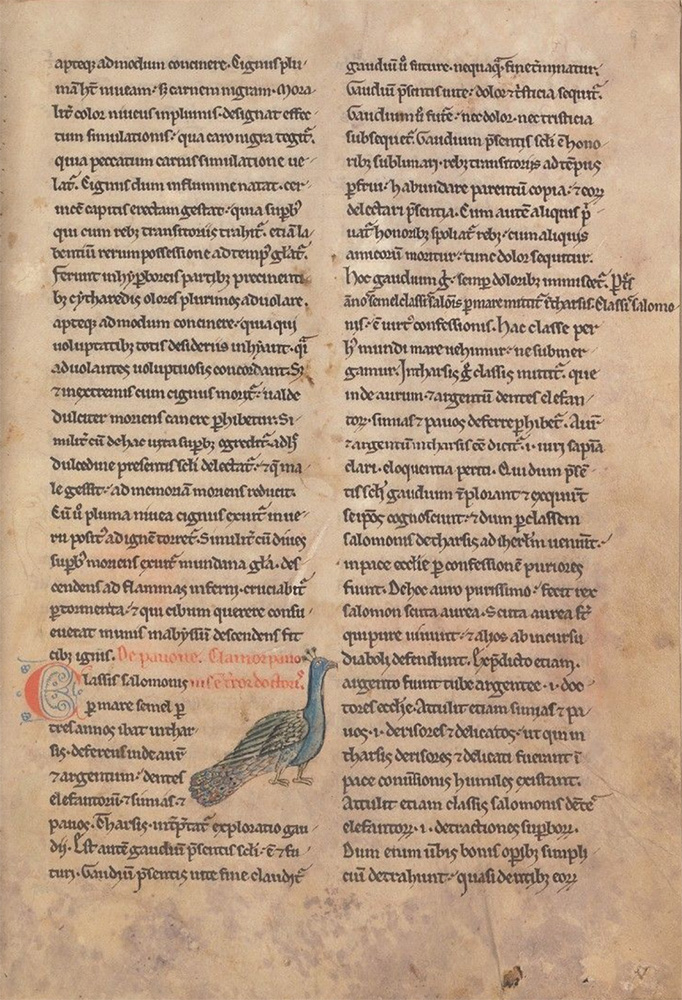 apteq; admodum concinere. Cignus plu-
mā hīt niveam. s; carnem nigram. Mora-
lit̄ color niveus in plumis. designat effec-
tum simulationis. qua caro nigra tegit̄.
quia peccatum carnis simulatione ve-
lat̄. Cignus dum in flumine natat. cer-
vicē capitis erectam gestat. quia supb'
qui cum reb; transitoriis trahit̄. etiā la-
bentiū rerum possessione ad temp' gl̄at̄.
Ferunt in hyp̱boreis partib; precinenti-
b; cytharedis olores plurimos advolare.
apteq; admodum concinere. quia qui
voluptatib; totis desideriis inhyant. q̄si
advolantes voluptuosis concordant. S;
⁊ in extremis cum cignus morit̄. valde
dulciter moriens canere ꝑhibetur. Si-
milit̄ cū de hac vita supb' egredit̄. adh'
dulcedine presentis scli delectat̄. ⁊ q̄ ma-
le gessit. ad memoriā moriens reducit.
Cū ū pluma nivea cignus exuit̄ in ve-
ru posit' ad ignē torret̄. Similit̄ cū dives
supb' moriens exuit̄ mundana gl̄a. des-
cendens ad flammas inferni. cruciabit̄
ꝑ tormenta. ⁊ qui cibum querere consu-
everat in imis in abyssū descendens fit
cib; ignis. De pavone. Clamor pavo-
nis ē t̄ror doctoris.
Classis salomonis
ꝑ mare semel ꝑ
tres annos ibat in thar-
sis. deferens inde aurū
⁊ argentum. dentes
elefantorū. ⁊ simias. ⁊
pavos. Tharsis. int̄ptat̄ exploratio gau-
dii. Est autē gaudiū p̄sentis scli. ē ⁊ fu-
turi. Gaudiū p̄sentis vite fine claudit̄
gaudiū ū future. nequaq̄. fine t̄minatur.
Gaudiū p̄sentis vite. dolor ⁊ t̄sticia sequit̄.
Gaudium ū fut̄e. nec dolor. nec tristicia
subsequet̄. Gaudium p̄sentis scli ē hono-
rib; sublimari. reb; transitoriis ad tēpus
ꝑfrui. habundare parentū copia. ⁊ eoꝝ
delectari p̄sentia. Cum autē aliquis p̄-
vat̄ honorib; spoliat̄ reb;. cum aliquis
amicorū moritur. tunc dolor sequitur.
Hoc gaudium ḡ. semꝑ dolorib; inmiscet̄. P̄ t̄es
āno semel classis salōis ꝑ mare mittit̄ ī tharsis. Classis salomo-
nis. ē virt' confessionis. Hac classe per
h' mundi mare vehimur. ne submer-
gamur. In tharsis ḡ classis mittit̄. que
inde aurum. ⁊ argentū dentes elefan-
toꝝ. simias ⁊ pavos deferre ꝑhibet̄. Aurū
⁊ argentū in tharsis eē dicit̄. i. viri sapīa
clari. eloquentia periti. Qui dum p̄sē-
tis scli gaudium īplorant ⁊ exquirūt
seipōs cognoscunt. ⁊ dum ꝑ classem
salomonis de tharsis ad ihrlm veniūt.
in pace ecclie ꝑ confessionē puriores
fiunt. De hoc auro purissimo. fecit rex
salomon scuta aurea. Scuta aurea st̄
qui pure vivunt. ⁊ alios ab incursu
diaboli defendunt. De p̄dicto etiam.
argento fiunt tube argentee. i. doc-
tores ecclie. Attulit etiam simias ⁊ pa-
vos. i. derisores ⁊ delicatos. ut qui in
tharsis derisores ⁊ delicati fuerunt ī
pace conv̄sionis humiles existant.
Attulit etiam classis salomonis dētes
elefantoꝝ. i. detractiones supboꝝ.
Dum enim v̄bis bonis oꝑib; simpli-
ciū detrahunt. quasi dentib; eoꝝ